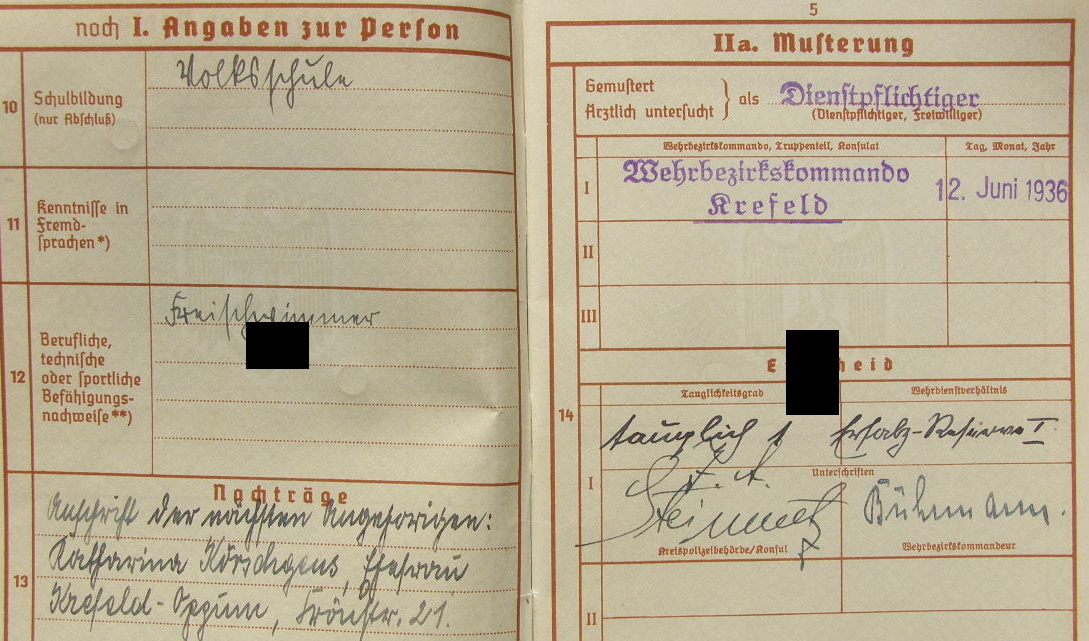 noch I. Angaben zur Person
10
Schulbildung
(nur Abschluß)
Volksschule
11
Kenntnisse in
Fremd-
sprachen *)
12
Berufliche,
technische
oder sportliche
Befähigungs-
nachweise **)
Freischwimmer
Nachträge
13
Anschrift der nächsten Angehörigen:
Katharina Körschgens, Ehefrau
Krefeld-Oppum, 21.
5
IIa. Musterung
Gemustert
Ärztlich untersucht } als Dienstpflichtiger
(Dienstpflichtiger, Freiwilliger)
Wehrbezirkskommando, Truppenteil, Konsulat
Tag, Monat, Jahr
I
Wehrbezirkskommando
Krefeld
12. Juni 1936
II
III
14
Tauglichkeitsgrad
Wehrdienstverhältnis
tauglich 1
Ersatz-Reserve I
Unterschriften
I
Bühmann.
Kreispolizeibehörde/Konsul
Wehrbezirkskommandeur
II